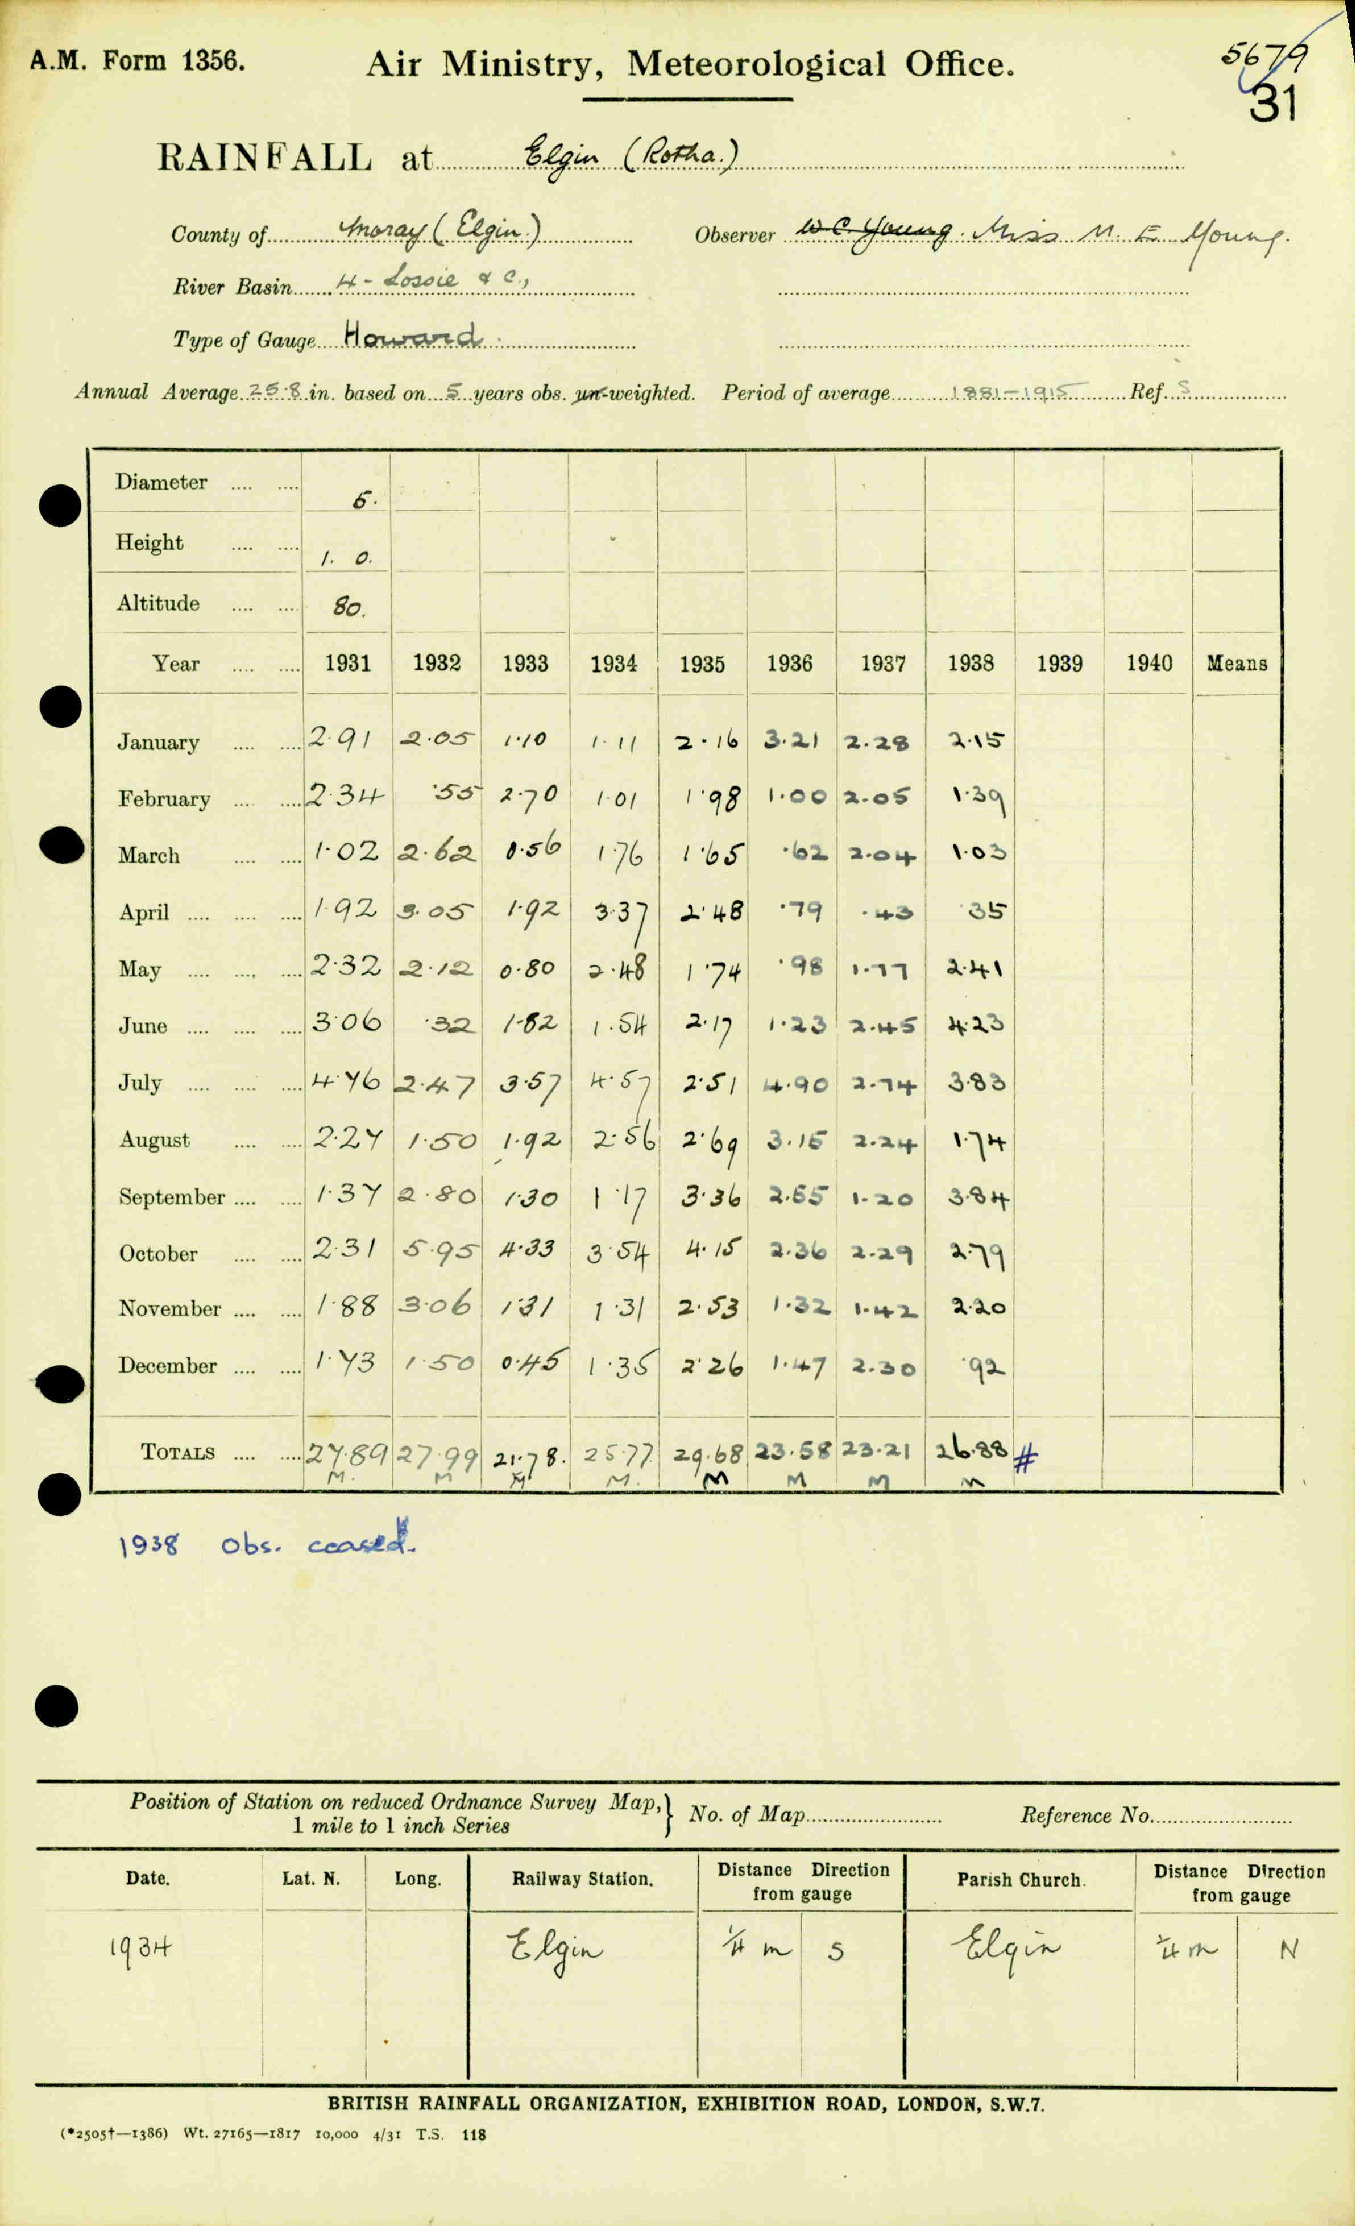 A.M. Form 1356. Air Ministry, Meteorological Office. 5679
31
RAINFALL at Elgin (Rotha.)
County of Moray (Elgin.) Observer W C Young. Miss M. E. Young.
River Basin 4 - Lossie & c.,
Type of Gauge Howard.
Annual Average 25.8 in. based on 5 years obs. un-weighted. Period of average 1881-1915 Ref. S
Diameter 5.
Height 1. 0.
Altitude 80.
Year 1931 1932 1933 1934 1935 1936 1937 1938 1939 1940 Means
January 2.91 2.05 1.10 1.11 2.16 3.21 2.28 2.15
February 2.34 .55 2.70 1.01 1.98 1.00 2.05 1.39
March 1.02 2.62 0.56 1.76 1.65 .62 2.04 1.03
April 1.92 3.05 1.92 3.37 2.48 .79 .43 .35
May 2.32 2.12 0.80 2.48 1.74 .98 1.77 2.41
June 3.06 .32 1.82 1.54 2.17 1.23 2.45 4.23
July 4.76 2.47 3.57 4.57 2.51 4.90 2.74 3.83
August 2.27 1.50 1.92 2.56 2.69 3.15 2.24 1.74
September 1.37 2.80 1.30 1.17 3.36 2.55 1.20 3.84
October 2.31 5.95 4.33 3.54 4.15 2.36 2.29 2.79
November 1.88 3.06 1.31 1.31 2.53 1.32 1.42 2.20
December 1.73 1.50 0.45 1.35 2.26 1.47 2.30 .92
TOTALS 27.89 27.99 21.78. 25.77 29.68 23.58 23.21 26.88 #
M. M M M. M M M M
1938 Obs. ceased.
Position of Station on reduced Ordnance Survey Map, 1 mile to 1 inch Series } No. of Map Reference No.
Date. Lat. N. Long. Railway Station. Distance Direction from gauge Parish Church. Distance Direction from gauge
1934 Elgin 1/4 m S Elgin 1/4 m N
BRITISH RAINFALL ORGANIZATION, EXHIBITION ROAD, LONDON, S.W.7.
(*2505†—1386) Wt. 27165—1817 10,000 4/31 T.S. 118